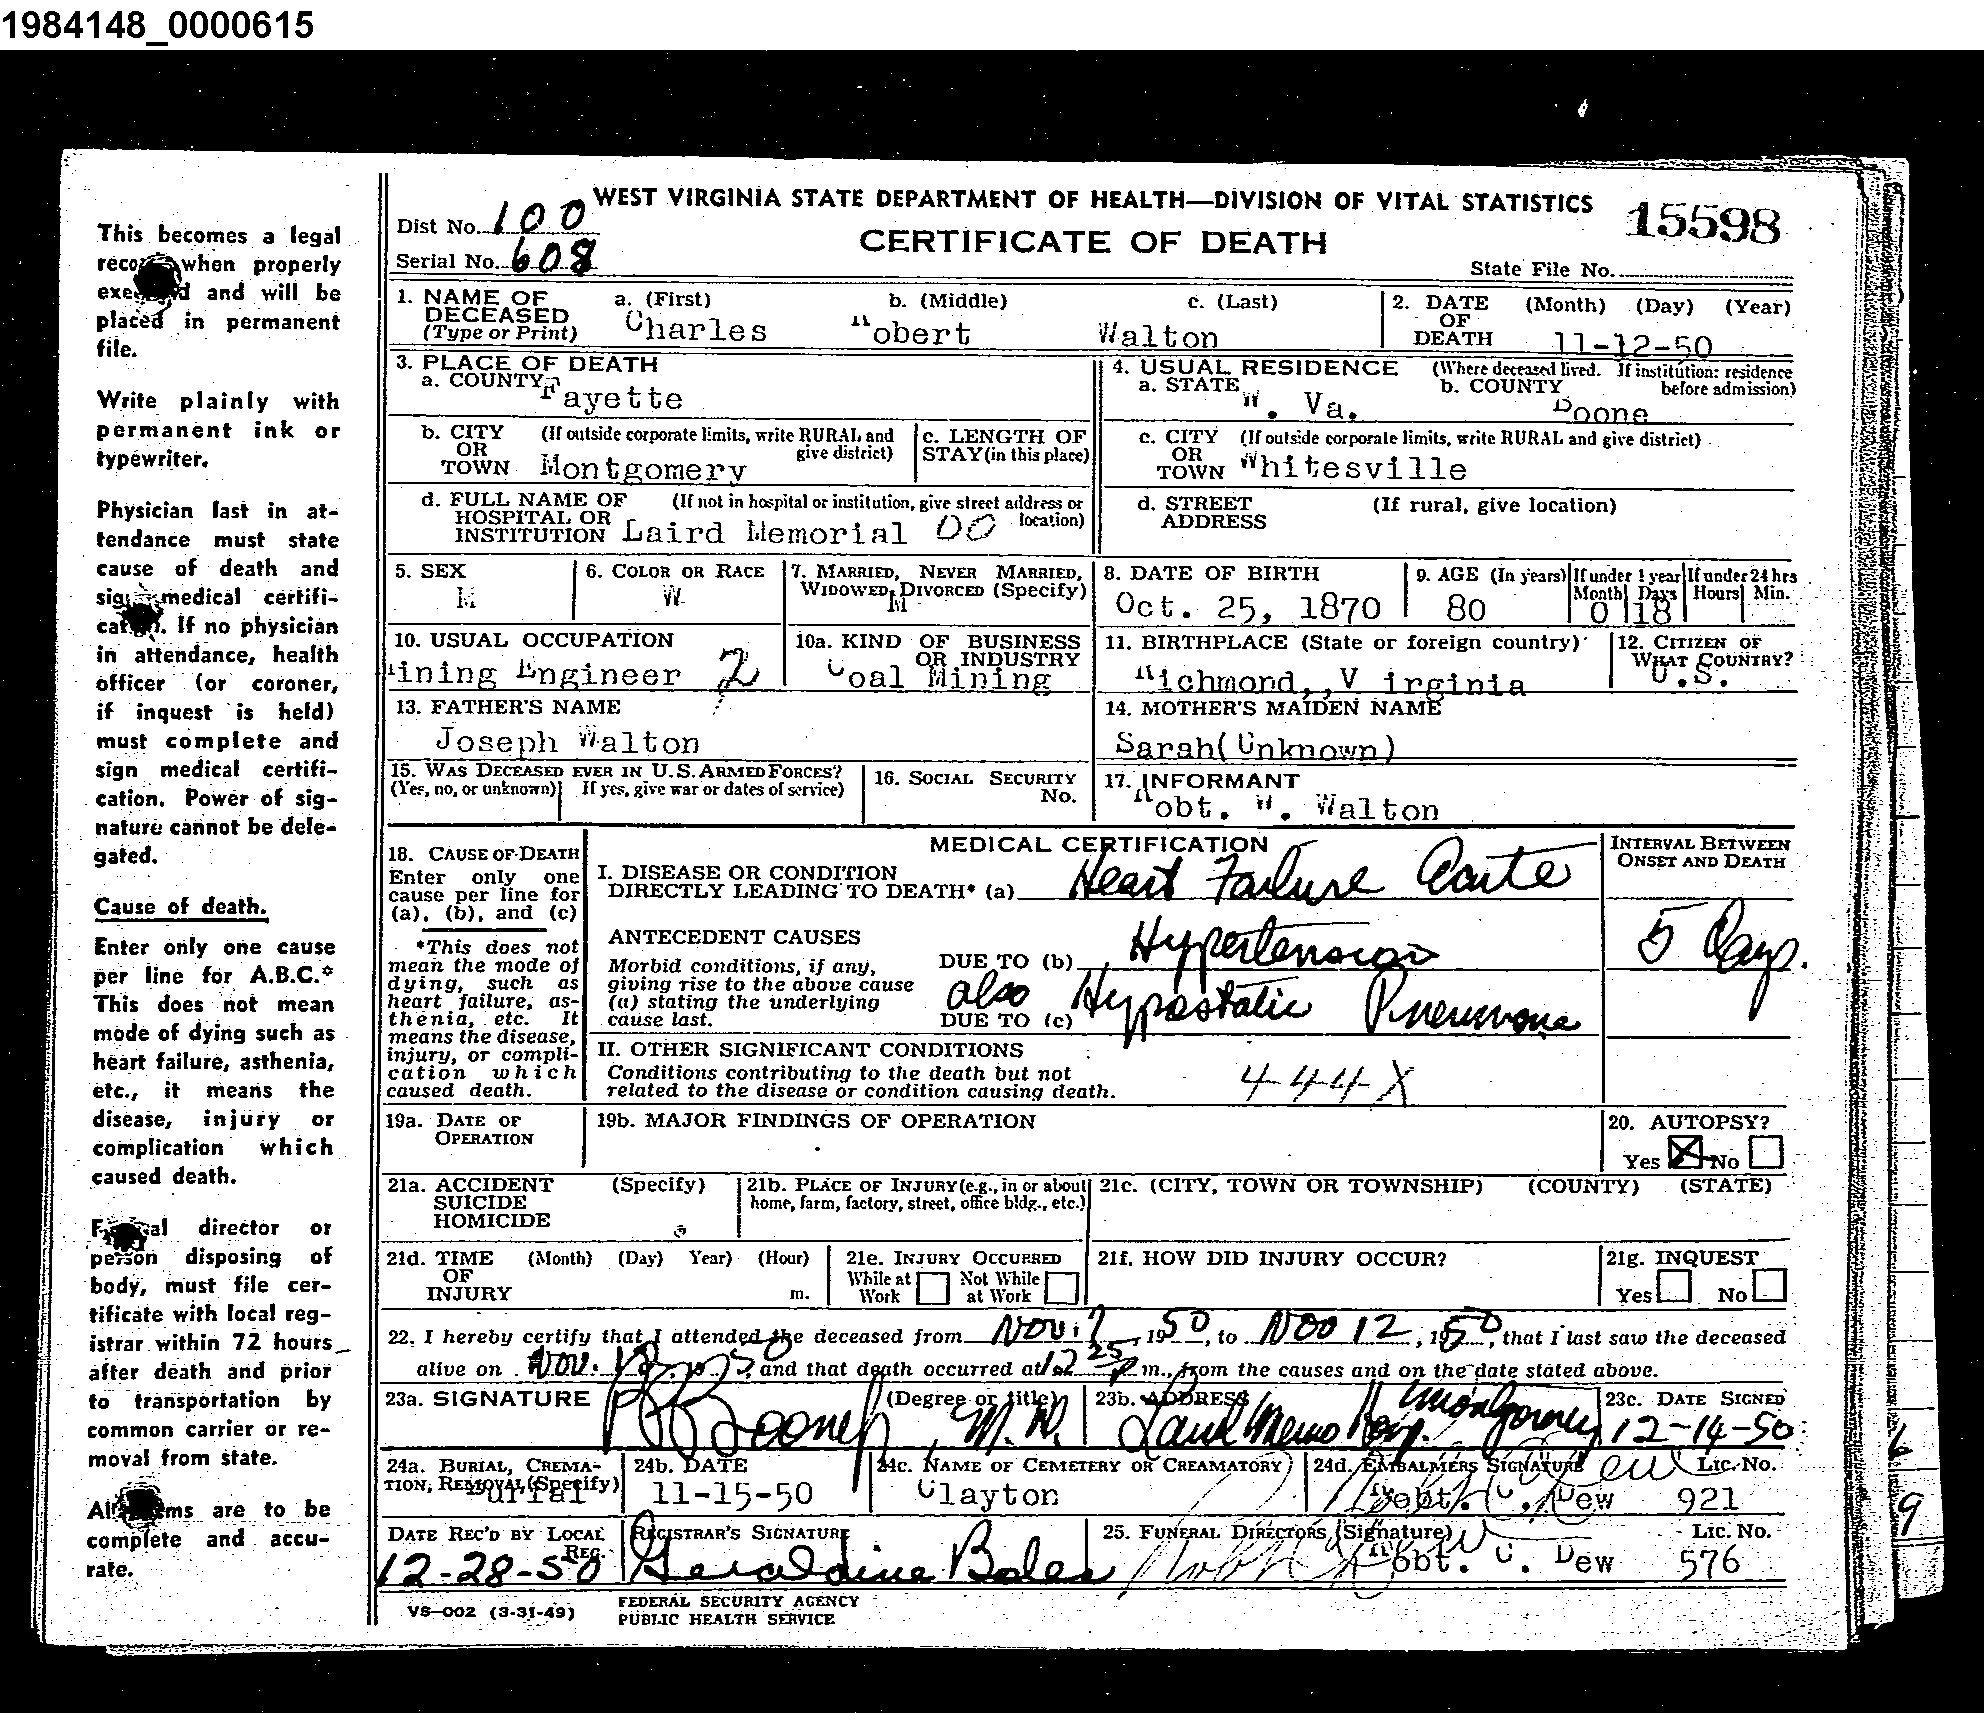 1984148_0000615
This becomes a legal
when properly
and will be
placed in permanent
file.
Write plainly with
permanent ink or
typewriter.
Physician last in at-
tendance must state
cause of death and
medical certifi-
If no physician
in attendance, health
officer (or coroner,
if inquest is held)
must complete and
sign medical certifi-
cation. Power of sig-
nature cannot be dele-
gated.
Cause of death.
Enter only one cause
per line for A.B.C.*
This does not mean
mode of dying such as
heart failure, asthenia,
etc., it means the
disease, injury or
complication which
caused death.
director or
person disposing of
body, must file cer-
tificate with local reg-
istrar within 72 hours
after death and prior
to transportation by
common carrier or re-
moval from state.
are to be
complete and accu-
rate.
WEST VIRGINIA STATE DEPARTMENT OF HEALTH—DIVISION OF VITAL STATISTICS
Dist No. 100
Serial No. 608
CERTIFICATE OF DEATH
15598
State File No.
1. NAME OF DECEASED (Type or Print) a. (First) Charles b. (Middle) Robert c. (Last) Walton
2. DATE OF DEATH (Month) (Day) (Year) 11-12-50
3. PLACE OF DEATH
a. COUNTY Fayette
4. USUAL RESIDENCE (Where deceased lived. If institution: residence before admission)
a. STATE W. Va. b. COUNTY Boone
b. CITY OR TOWN (If outside corporate limits, write RURAL and give district) Montgomery
c. LENGTH OF STAY (in this place)
c. CITY OR TOWN (If outside corporate limits, write RURAL and give district) Whitesville
d. FULL NAME OF HOSPITAL OR INSTITUTION (If not in hospital or institution, give street address or location) Laird Memorial 00
d. STREET ADDRESS (If rural, give location)
5. SEX M
6. COLOR OR RACE W
7. MARRIED, NEVER MARRIED, WIDOWED, DIVORCED (Specify) M
8. DATE OF BIRTH Oct. 25, 1870
9. AGE (In years) 80 If under 1 year Month 0 Days 18 If under 24 hrs Hours Min.
10. USUAL OCCUPATION Mining Engineer 2
10a. KIND OF BUSINESS OR INDUSTRY Coal Mining
11. BIRTHPLACE (State or foreign country) Richmond, ,V irginia
12. CITIZEN OF WHAT COUNTRY? U.S.
13. FATHER'S NAME Joseph Walton
14. MOTHER'S MAIDEN NAME Sarah( Unknown)
15. WAS DECEASED EVER IN U.S. ARMED FORCES? (Yes, no, or unknown) If yes, give war or dates of service)
16. SOCIAL SECURITY No.
17. INFORMANT Robt. W. Walton
MEDICAL CERTIFICATION
18. CAUSE OF DEATH
Enter only one
cause per line for
(a), (b), and (c)
*This does not
mean the mode of
dying, such as
heart failure, as-
thenia, etc. It
means the disease,
injury, or compli-
cation which
caused death.
I. DISEASE OR CONDITION
DIRECTLY LEADING TO DEATH* (a) Heart Failure Acute
ANTECEDENT CAUSES
Morbid conditions, if any,
giving rise to the above cause
(a) stating the underlying
cause last.
DUE TO (b) Hypertension
also Hypostatic Pneumonia
DUE TO (c)
INTERVAL BETWEEN
ONSET AND DEATH
5 Days.
II. OTHER SIGNIFICANT CONDITIONS
Conditions contributing to the death but not
related to the disease or condition causing death.
444X
19a. DATE OF OPERATION
19b. MAJOR FINDINGS OF OPERATION
20. AUTOPSY?
Yes No
21a. ACCIDENT SUICIDE HOMICIDE (Specify)
21b. PLACE OF INJURY (e.g., in or about home, farm, factory, street, office bldg., etc.)
21c. (CITY, TOWN OR TOWNSHIP) (COUNTY) (STATE)
21d. TIME OF INJURY (Month) (Day) Year) (Hour) m.
21e. INJURY OCCURRED While at Work Not While at Work
21f. HOW DID INJURY OCCUR?
21g. INQUEST Yes No
22. I hereby certify that I attended the deceased from Nov. 7, 1950, to Nov 12, 1950, that I last saw the deceased
alive on Nov. 12, 1950, and that death occurred at 12 25 P m., from the causes and on the date stated above.
23a. SIGNATURE (Degree or title) M.D.
23b. ADDRESS Laird Memo Hosp. Montgomery
23c. DATE SIGNED 12-14-50
24a. BURIAL, CREMATION, REMOVAL (Specify) Burial
24b. DATE 11-15-50
24c. NAME OF CEMETERY OR CREAMATORY Clayton
24d. EMBALMERS SIGNATURE Robt. C. Dew Lic. No. 921
DATE REC'D BY LOCAL REG. 12-28-50
REGISTRAR'S SIGNATURE Geraldine Boles
25. FUNERAL DIRECTORS (Signature) Robt. C. Dew Lic. No. 576
VS-002 (3-31-49)
FEDERAL SECURITY AGENCY
PUBLIC HEALTH SERVICE